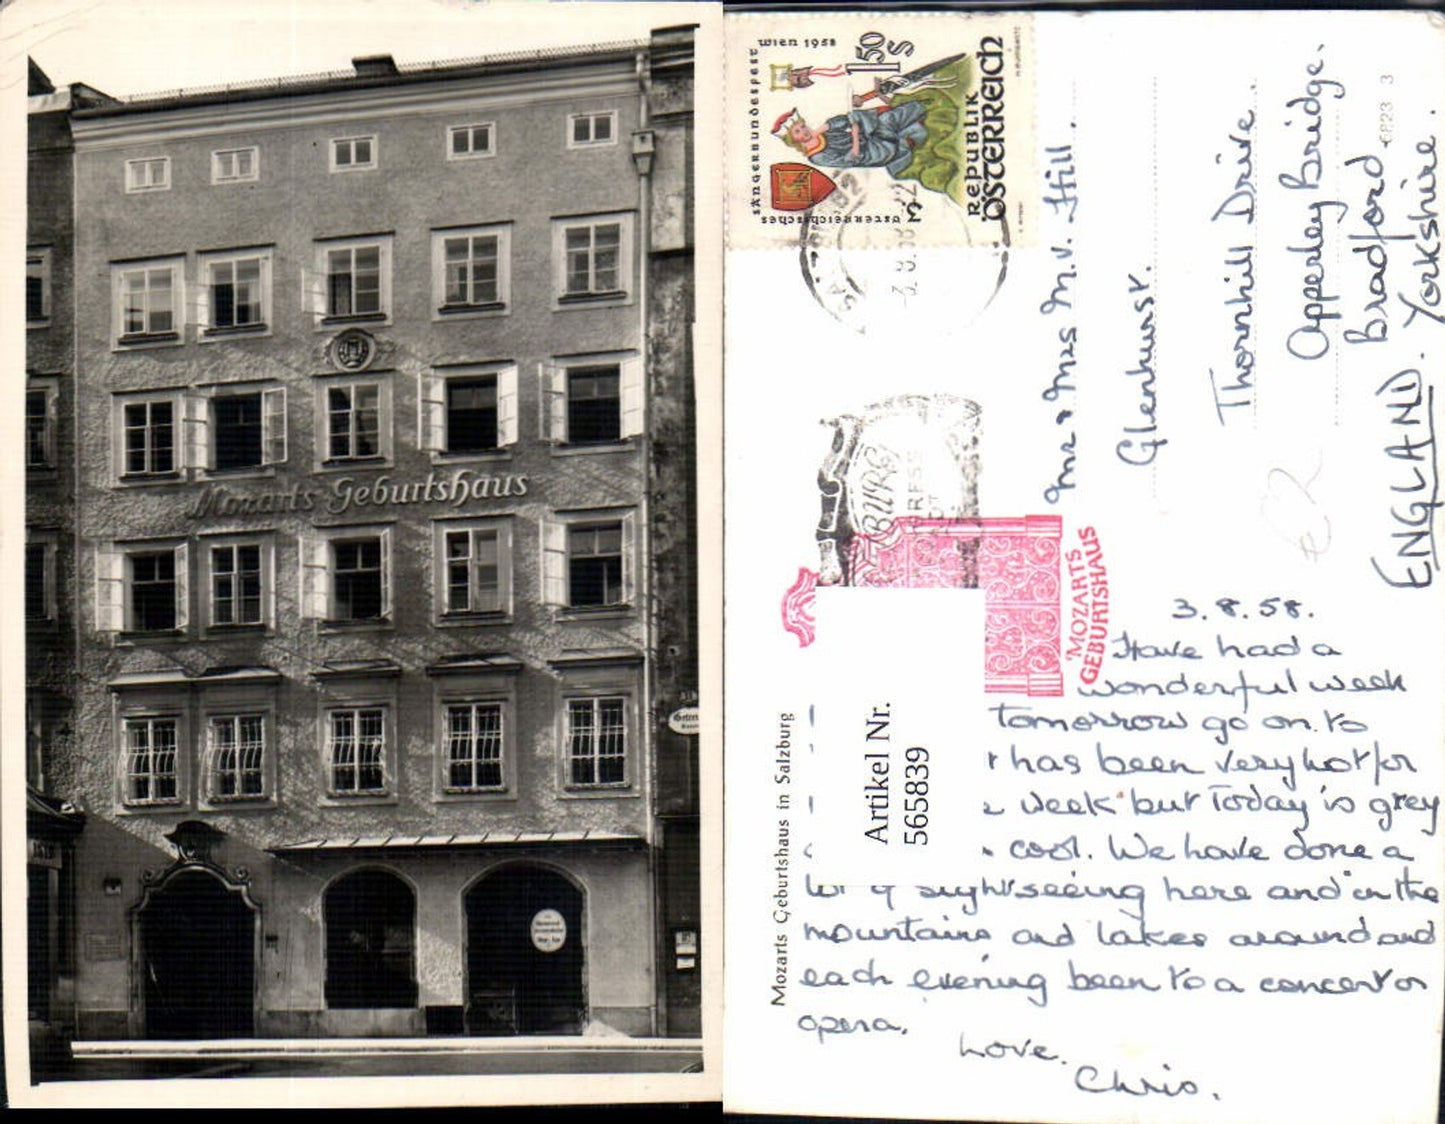 Mozarts Geburtshaus
wien 1958
sängerbundesfest
österreichisches
1.50 S
REPUBLIK
ÖSTERREICH
Mr & Mrs M.V. Hill.
Glenhurst.
Thornhill Drive.
Apperley Bridge.
Bradford
Yorkshire.
ENGLAND.
MOZARTS
GEBURTSHAUS
Mozarts Geburtshaus in Salzburg
Artikel Nr.
565839
3.8.58.
Have had a
wonderful week
tomorrow go on to
has been very hot for
week but Today is grey
cool. We have done a
lot of sightseeing here and in the
mountains and lakes around and
each evening been to a concert or
opera.
Love.
Chris.